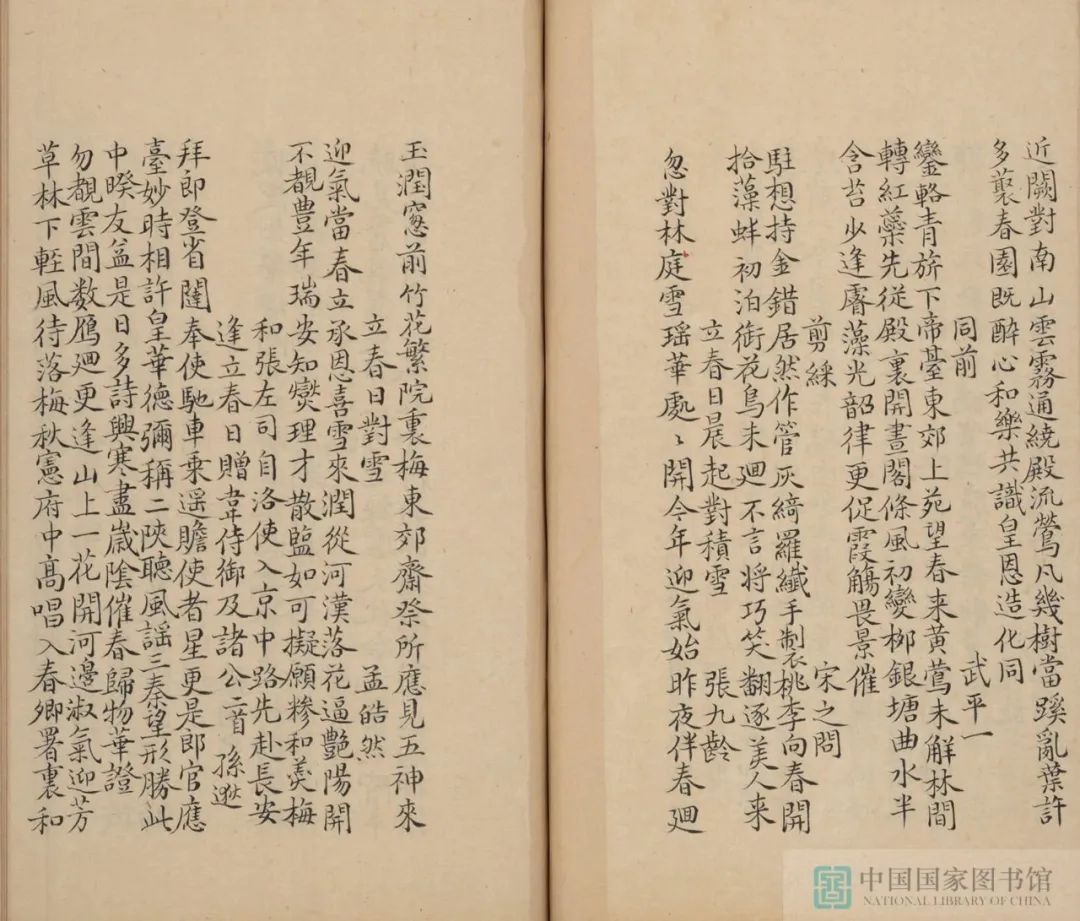 近闕對南山雲霧通繞殿流鶯凡幾樹當蹊亂葉許
多藂春園既醉心和樂共識皇恩造化同
同前 武平一
鑾輅青旂下帝臺東郊上苑望春来黄鶯未解林間
轉紅蘂先從殿裏開畫閣條風初變栁銀塘曲水半
含苔少逢睿藻光韶律更促霞觴畏景催
剪綵 宋之問
駐想持金錯居然作管灰綺羅纖手製桃李向春開
拾藻蚌初泊銜花鳥未廻不言将巧笑翻逐美人来
立春日晨起對積雪 張九齡
忽對林庭雪瑶華處〻開今年迎氣始昨夜伴春廻
玉潤窓前竹花繁院裏梅東郊齋祭所應見五神來
立春日對雪 孟皓然
迎氣當春立承恩喜雪來潤從河漢落花逼艷陽開
不覩豊年瑞安知爕理才散鹽如可擬願糝和羮梅
和張左司自洛使入京中路先赴長安
逢立春日贈韋侍御及諸公二首 孫逖
拜郎登省闥奉使馳車乘遥瞻使者星更是郎官應
臺妙時相許皇華德彌稱二陝聽風謡三秦望形勝此
中睽友益是日多詩興寒盡歲陰催春歸物華證
勿覩雲間数鴈廻更逢山上一花開河邊淑氣迎芳
草林下輕風待落梅秋憲府中髙唱入春卿署裏和
中国国家图书馆
NATIONAL LIBRARY OF CHINA